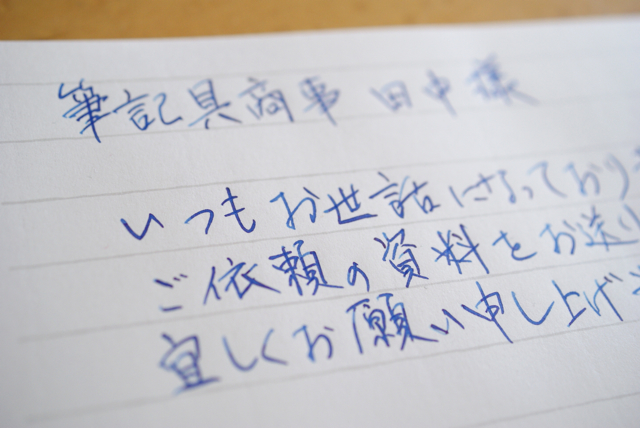 筆記具商事 田中様
いつもお世話になっており
ご依頼の資料をお送り
宜しくお願い申し上げ